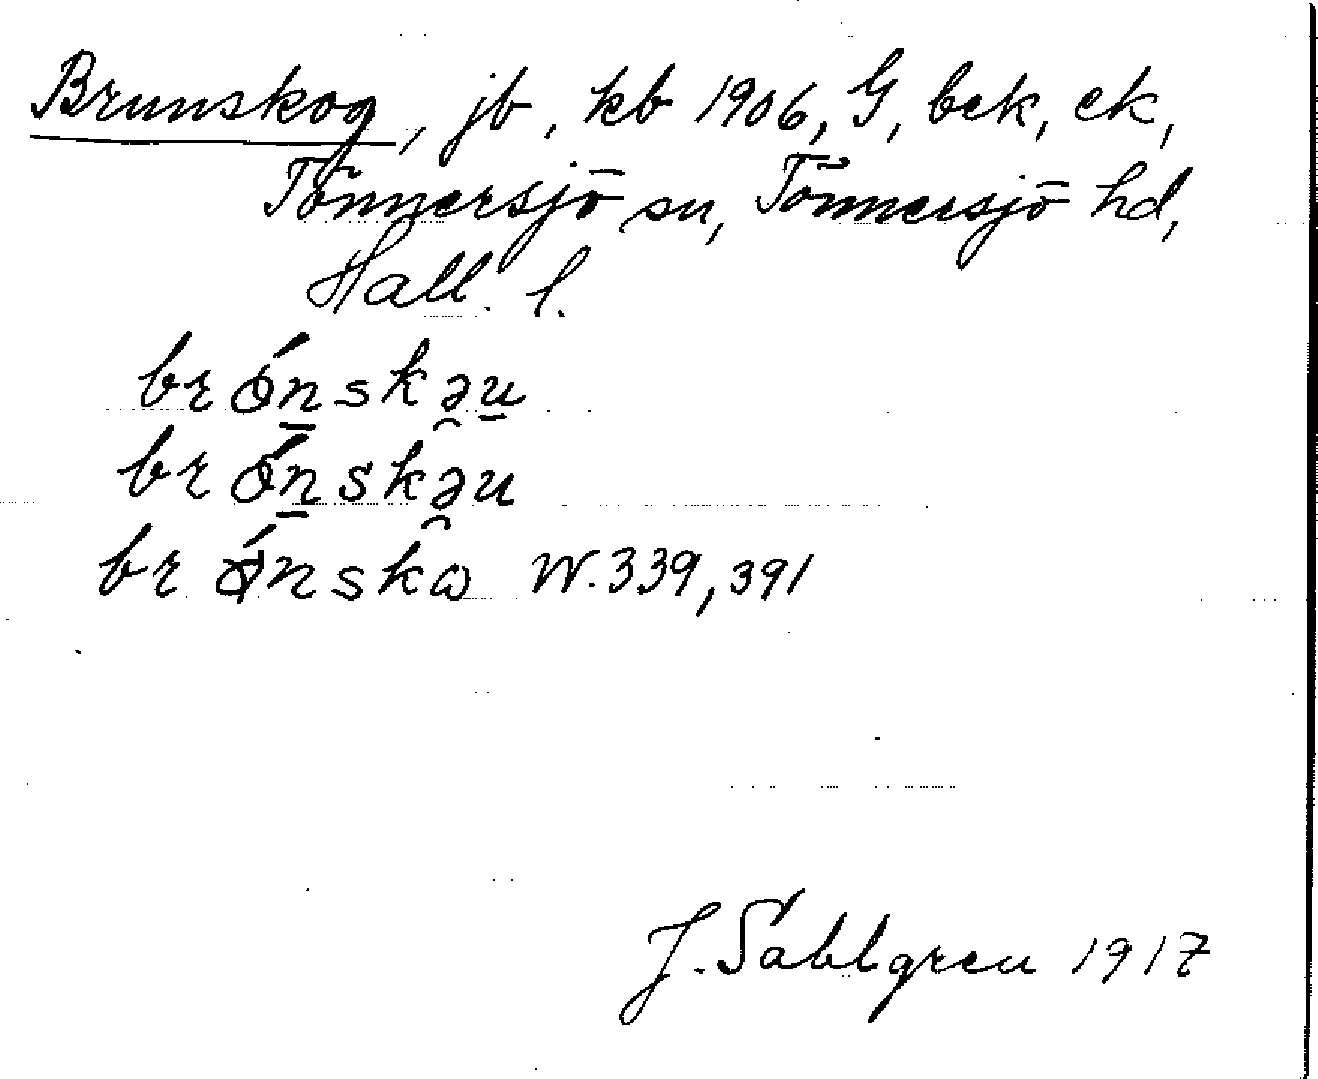 Brunskog, jb, kb 1906, G, bek, ek,
Tönnersjö sn, Tönnersjö hd,
Hall. l.
brǿn̲skə̯u̲
brǿn̲skə̯u
brǿnskɷ W. 339, 391
J. Sahlgren 1917